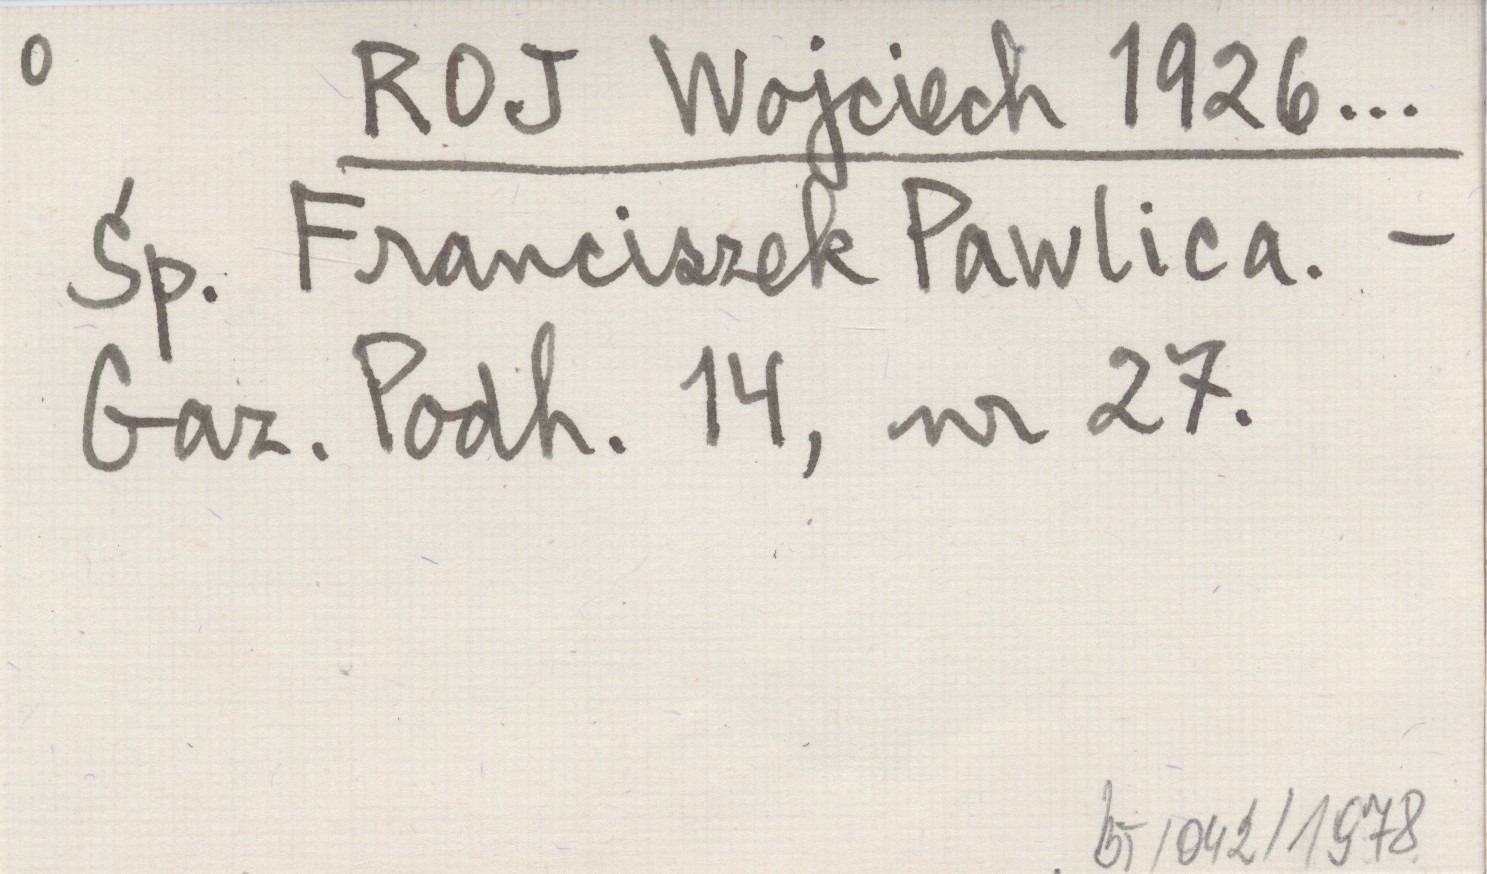 0
ROJ Wojciech 1926...
Śp. Franciszek Pawlica. -
Gaz. Podh. 14, nr 27.
/042/1978